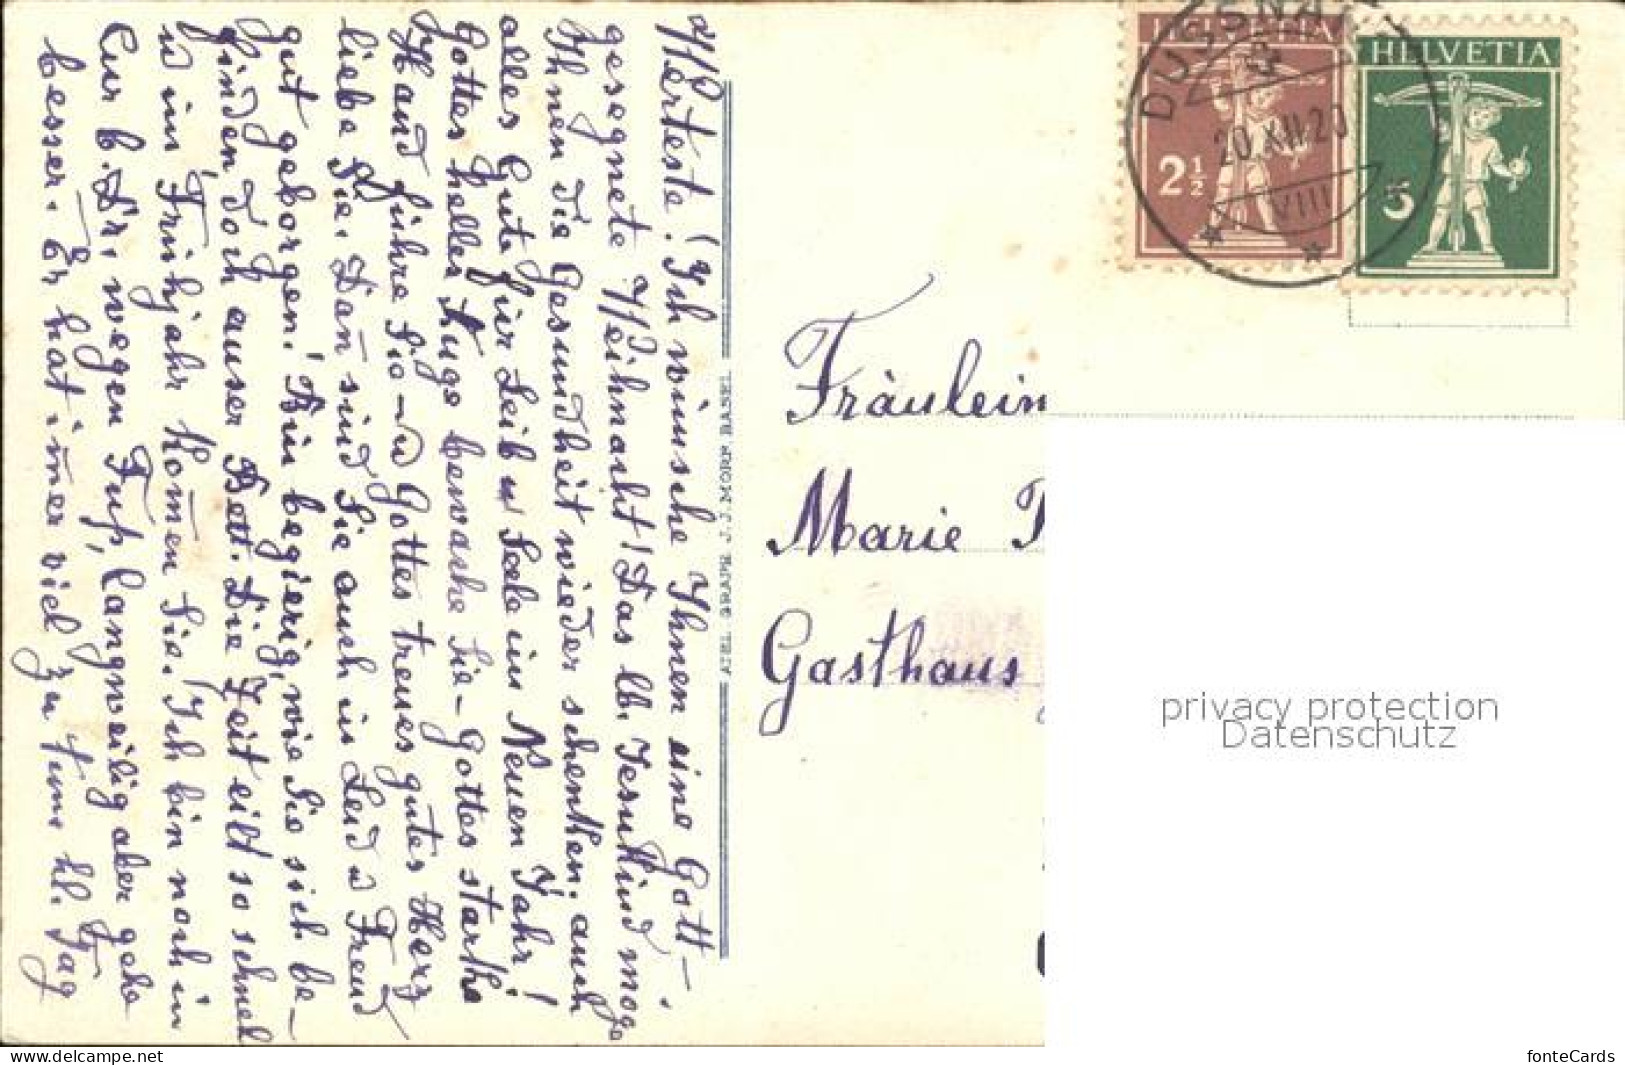 Werteste! Ich wünsche Ihnen eine Gott-
gesegnete Weihnacht! Das lb. Jesukind möge
Ihnen die Gesundheit wieder schenken. auch
alles Gute für Leib u Seele im Neuen Jahr!
Gottes helles Auge bewache Sie - Gottes starke
Hand führe Sie - u Gottes treues gutes Herz
liebe Sie. Dan̄ sind Sie auch in Leid u Freud
gut geborgen! Bin begierig, wie Sie sich be-
finden, doch auser Bett. Die Zeit eilt so schnel
w im Frühjahr kom̄en Sie. Ich bin noch in
Kur b. Dr. wegen Fuß, langweilig aber gehe
besser. Er hat im̄er viel zu tun. hl. Tag
HELVETIA
2½
HELVETIA
5
DUSSNA
20.XII.20
VIII
Fräulein
Marie
Gasthaus
privacy protection
Datenschutz
ansichtskartenwelt.com
fonteCards